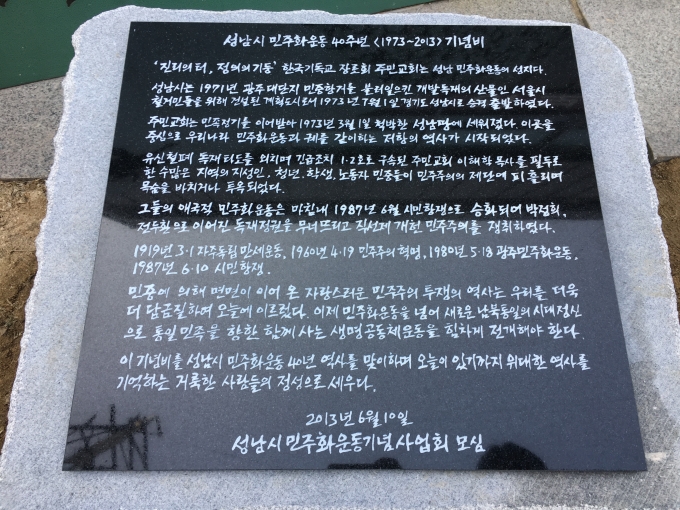 성남시 민주화운동 40주년 <1973~2013> 기념비
'진리의 터, 정의의 기둥' 한국기독교 장로회 주민교회는 성남 민주화운동의 성지다.
성남시는 1971년 광주대단지 민중항거를 불러일으킨 개발독재의 산물인 서울시
철거민들을 위해 건설된 계획도시로서 1973년 7월 1일 경기도 성남시로 승격 출발하였다.
주민교회는 민족정기를 이어받아 1973년 3월 1일 척박한 성남땅에 세워졌다. 이곳을
중심으로 우리나라 민주화운동과 궤를 같이하는 저항의 역사가 시작되었다.
유신철폐 독재타도를 외치며 긴급조치 1·2호로 구속된 주민교회 이해학 목사를 필두로
한 수많은 지역의 지성인, 청년, 학생, 노동자 민중들이 민주주의의 제단에 피 흘리며
목숨을 바치거나 투옥되었다.
그들의 애국적 민주화운동은 마침내 1987년 6월 시민항쟁으로 승화되어 박정희,
전두환으로 이어진 독재정권을 무너뜨리고 직선제 개헌 민주주의를 쟁취하였다.
1919년 3·1 자주독립 만세운동, 1960년 4·19 민주주의 혁명, 1980년 5·18 광주민주화운동,
1987년 6·10 시민항쟁.
민중에 의해 면면이 이어 온 자랑스러운 민주주의 투쟁의 역사는 우리를 더욱
더 담금질하여 오늘에 이르렀다. 이제 민주화운동을 넘어 새로운 남북통일의 시대정신
으로 통일 민족을 향한 함께 사는 생명공동체운동을 힘차게 전개해야 한다.
이 기념비를 성남시 민주화운동 40년 역사를 맞이하며 오늘이 있기까지 위대한 역사를
기억하는 거룩한 사람들의 정성으로 세우다.
2013년 6월 10일
성남시 민주화운동기념사업회 모심